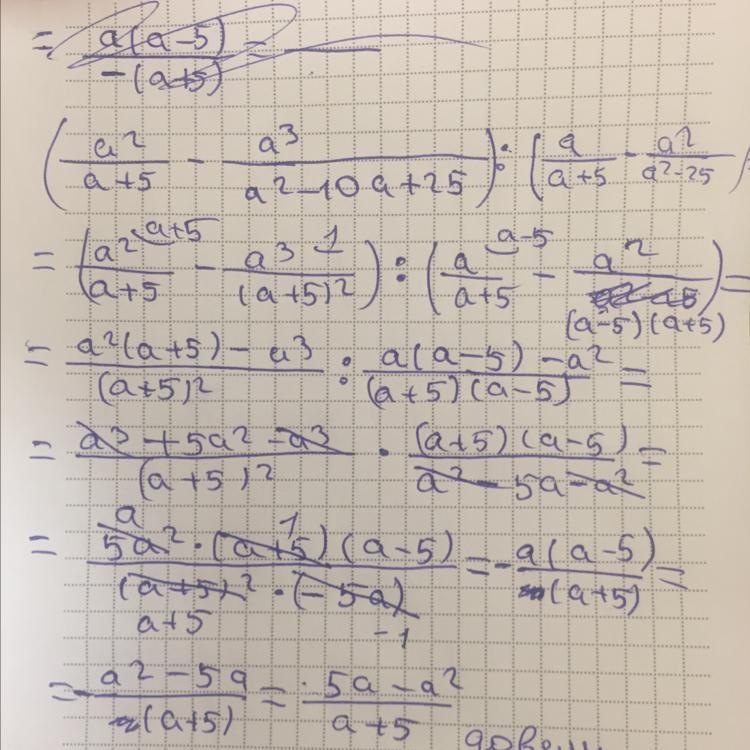 = a(a-5) / -(a+5) =
(a² / a+5 - a³ / a²-10a+25) : (a / a+5 - a² / a²-25)
= (a² / a+5 - a³ / (a+5)²) : (a / a+5 - a² / (a-5)(a+5)) =
= a²(a+5) - a³ / (a+5)² : a(a-5) - a² / (a+5)(a-5) =
= a³ + 5a² - a³ / (a+5)² · (a+5)(a-5) / a² - 5a - a² =
= 5a² · (a+5)(a-5) / (a+5)² · (-5a) = - a(a-5) / (a+5) =
= - a² - 5a / (a+5) = 5a - a² / a+5